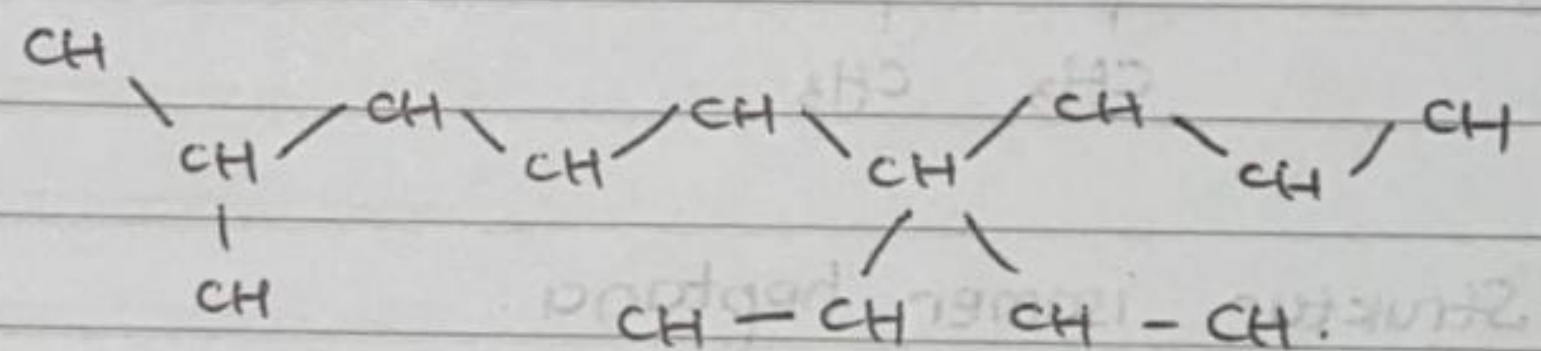 CH
CH CH CH
CH CH CH CH CH
CH
CH - CH CH - CH.